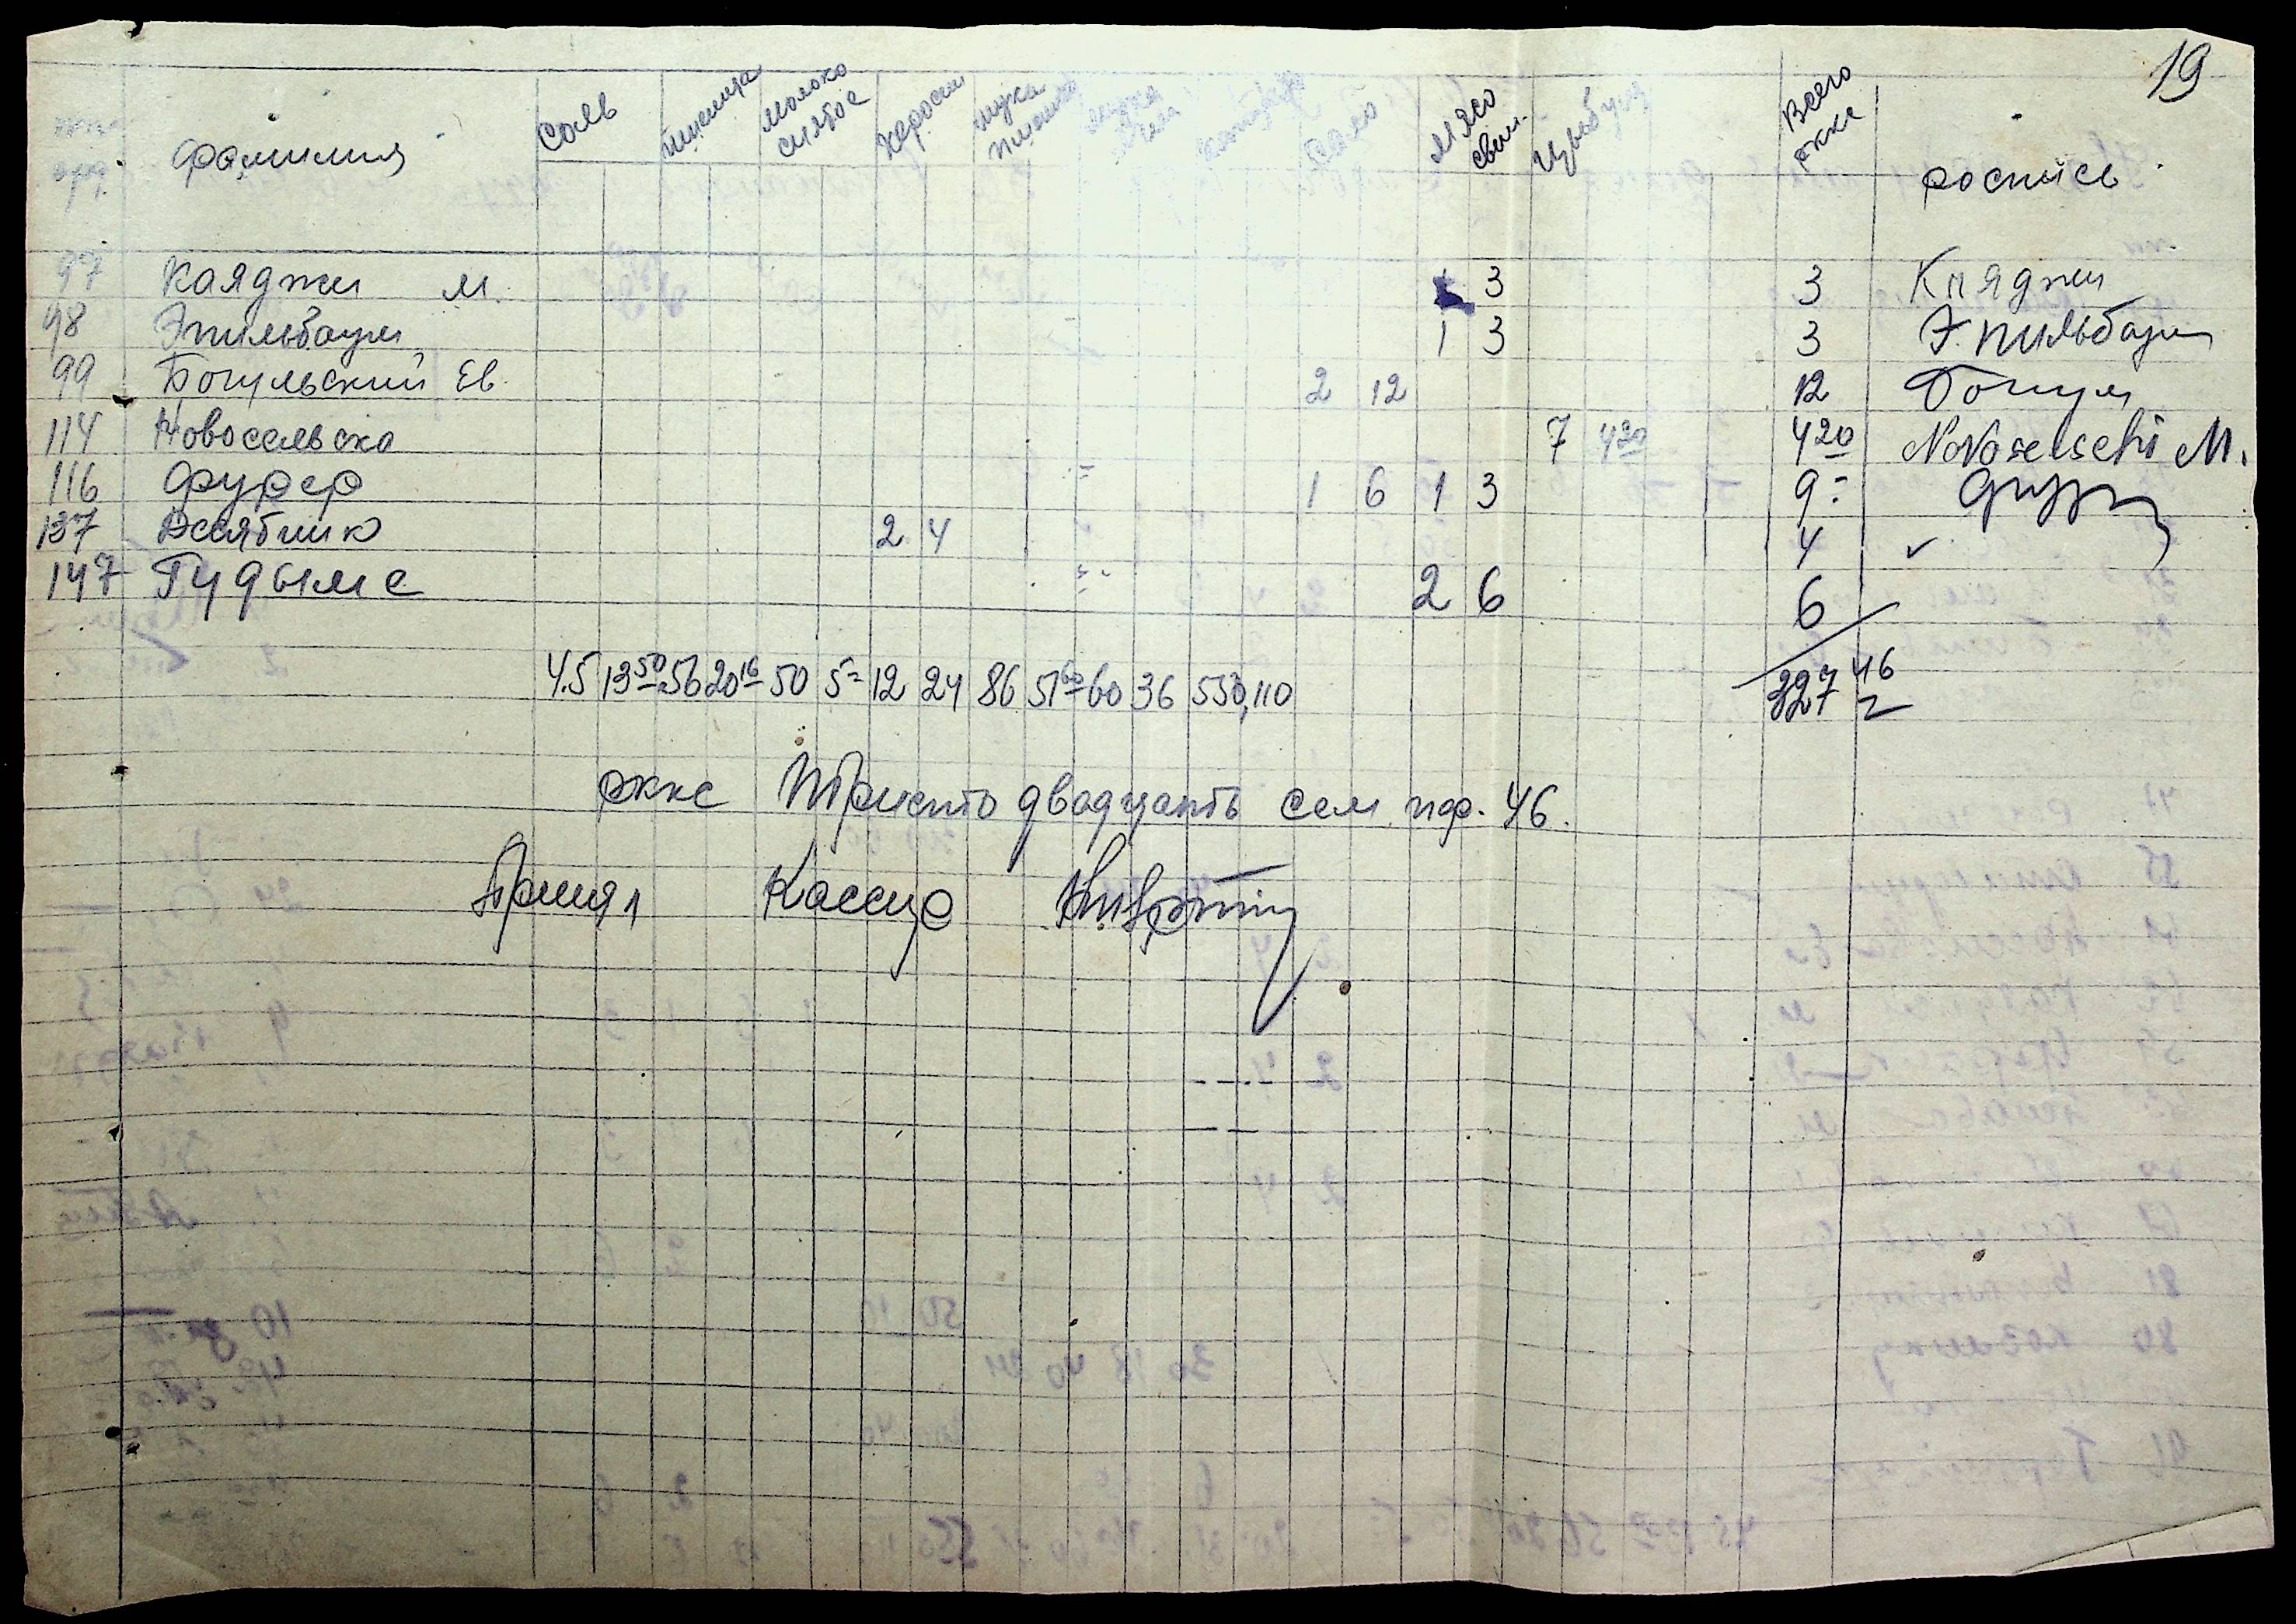 19
Фамилия Соль пшеница молоко сметое Кероси мука пшенич Сало мясо свин. Цыбуля Всего ркке роспись
97 Каяджи М. 3 3 Каяджи
98 Эпильбаум 1 3 3 Э.пильбаум
99 Богульский Ев. 2 12 12 Богул
114 Новосельско 7 420 420 Novoselschi M.
116 Фурер 1 6 1 3 9=
137 Десятник 2 4 4 ✓
147 Гудыме 2 6 6
4.5 13 50 56 20 16 50 5= 12 24 86 51 60 60 36 550,110 327 46
ркке Тристо двадцать сем пф. 46.
Принял Кассир